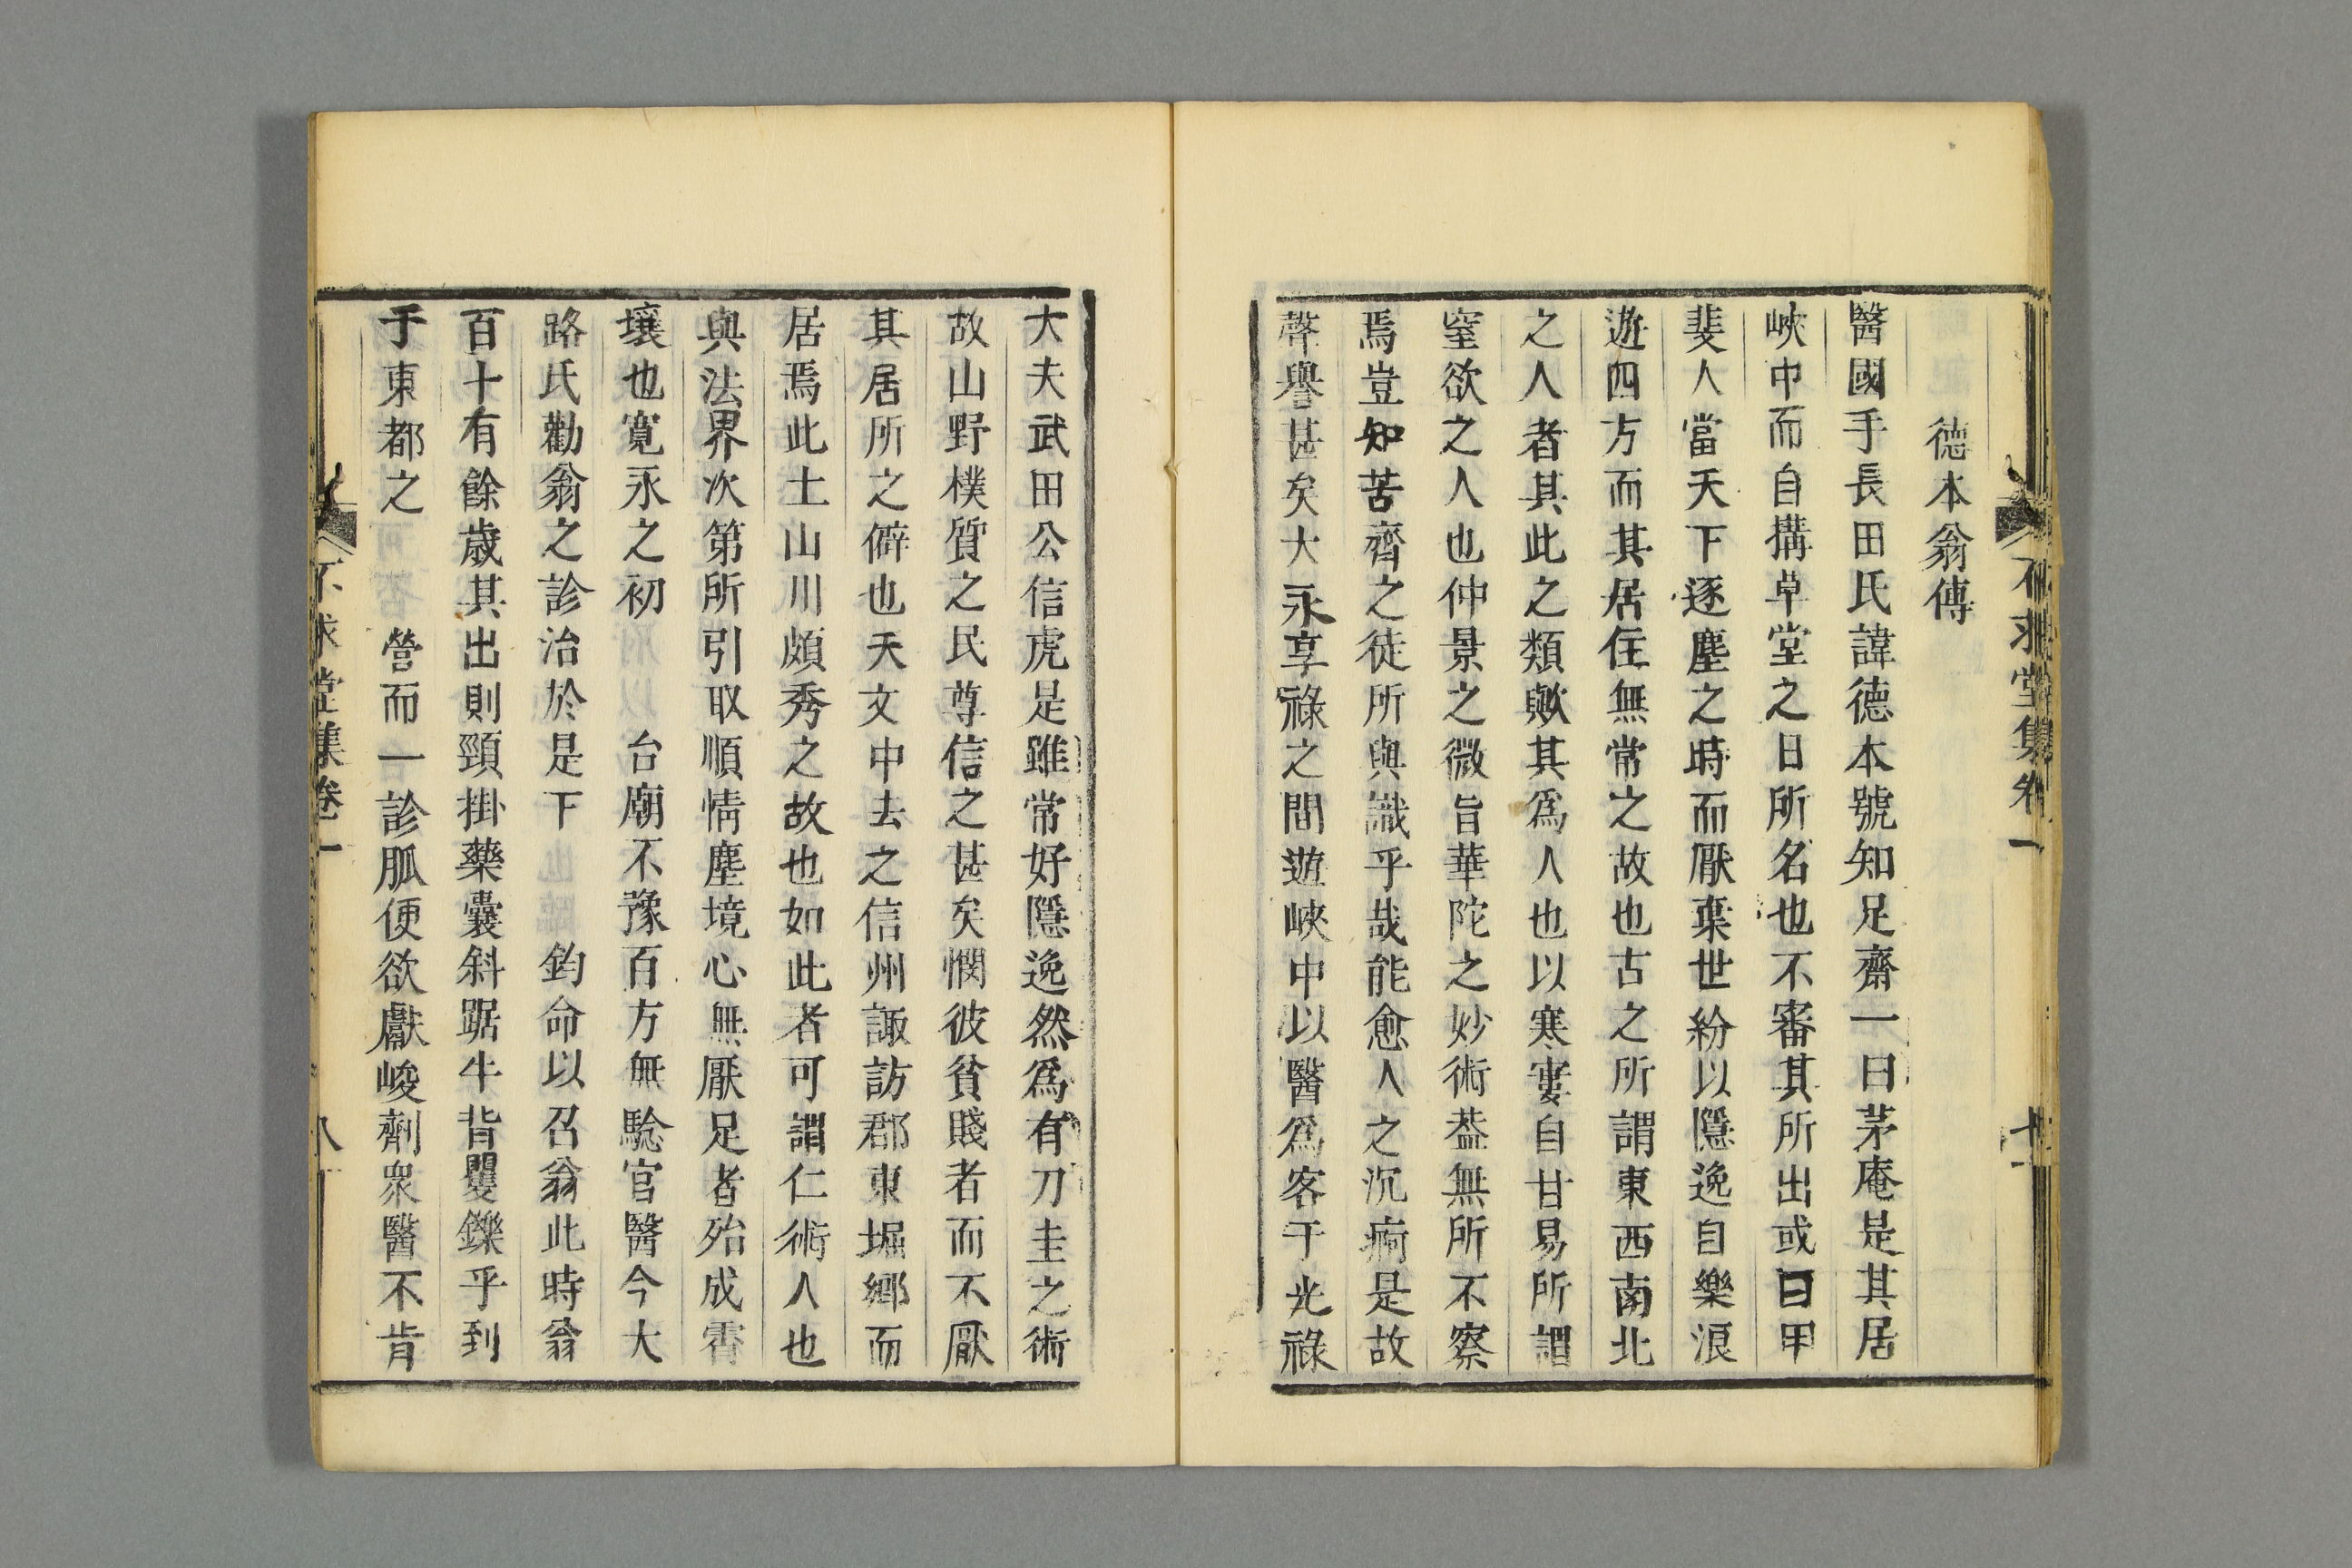 不求堂集卷一
七
德本翁傳
醫國手長田氏諱德本號知足齋一曰茅庵是其居
峽中而自搆草堂之日所名也不審其所出或曰甲
斐人當天下逐塵之時而厭棄世紛以隱逸自樂浪
遊四方而其居住無常之故也古之所謂東西南北
之人者其此之類歟其爲人也以寒寠自甘易所謂
窒欲之人也仲景之微旨華陀之妙術葢無所不察
焉豈知苦齊之徒所與識乎哉能愈人之沉痾是故
聲譽甚矣大永享祿之間遊峽中以醫爲客于光祿
大夫武田公信虎是雖常好隱逸然爲有刀圭之術
故山野樸質之民尊信之甚矣憫彼貧賤者而不厭
其居所之僻也天文中去之信州諏訪郡東堀鄉而
居焉此土山川頗秀之故也如此者可謂仁術人也
與法界次第所引取順情塵境心無厭足者殆成霄
壤也寬永之初 台廟不豫百方無驗官醫今大
路氏勸翁之診治於是下 鈞命以召翁此時翁
百十有餘歲其出則頸掛藥囊斜踞牛背矍鑠乎到
于東都之 營而一診脈便欲獻峻劑衆醫不肯
不求堂集卷一
八